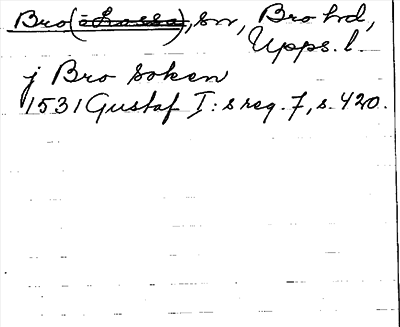 Bro (=Lossa), sn, Bro hd,
Upps. l.
j Bro Soken
1531 Gustaf I:s reg. 7, s. 420.